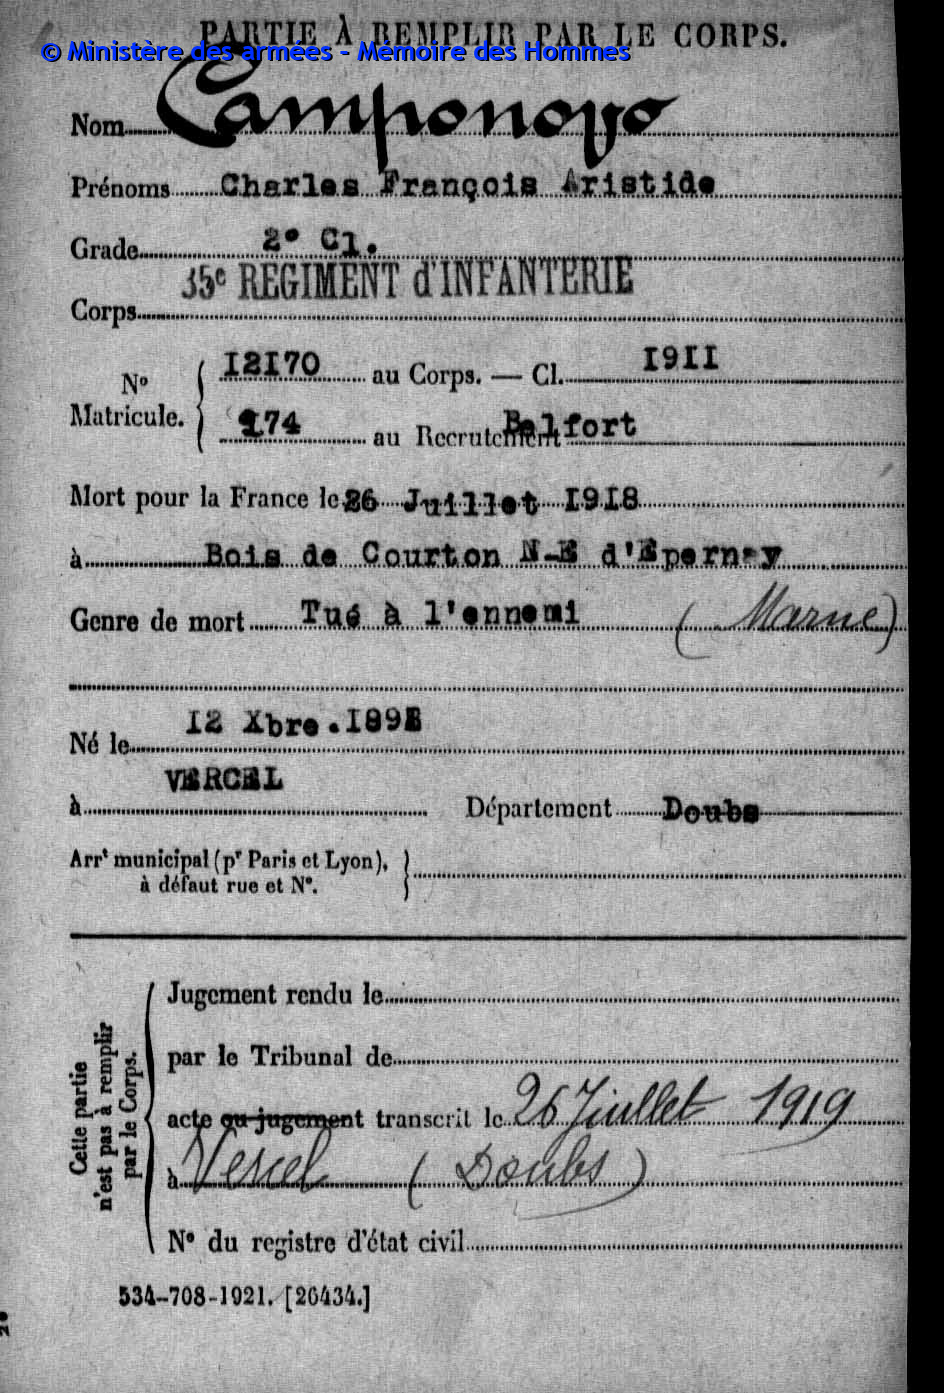 PARTIE À REMPLIR PAR LE CORPS.
© Ministère des armées - Mémoire des Hommes
Nom Camponovo
Prénoms Charles François Aristide
Grade 2° Cl.
35e REGIMENT d'INFANTERIE
Corps
I2I70 au Corps. — Cl. I9II
No Matricule.
174 au Recrutement Belfort
Mort pour la France le 26 Juillet I9I8
à Bois de Courton N-E d'Epernay
Genre de mort Tué à l'ennemi (Marne)
Né le I2 Xbre.I89I
à VERCEL Département Doubs
Arrt municipal (pr Paris et Lyon),
à défaut rue et No.
Cette partie
n'est pas à remplir
par le Corps.
Jugement rendu le
par le Tribunal de
acte ou jugement transcrit le 26 Juillet 1919
à Vercel (Doubs)
No du registre d'état civil
534-708-1921. [26434.]